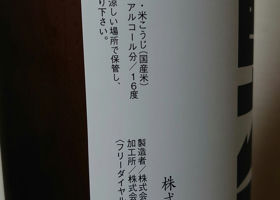 ・米こうじ(国産米)
アルコール分/16度
涼しい場所で保管し、
り下さい。
製造者/株式
加工所/株式会
(フリーダイヤル
株式